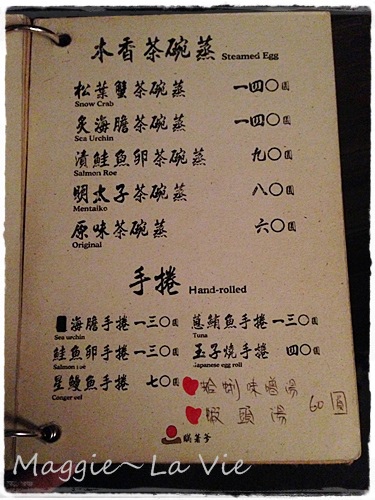 木香茶碗蒸 Steamed Egg
松葉蟹茶碗蒸 一四〇圓
Snow Crab
炙海膽茶碗蒸 一四〇圓
Sea Urchin
漬鮭魚卵茶碗蒸 九〇圓
Salmon Roe
明太子茶碗蒸 八〇圓
Mentaiko
原味茶碗蒸 六〇圓
Original
手捲 Hand-rolled
海膽手捲 一三〇圓 蔥鮪魚手捲 一三〇圓
Sea urchin Tuna
鮭魚卵手捲 一三〇圓 玉子燒手捲 四〇圓
Salmon roe Japanese egg roll
星鰻魚手捲 七〇圓 蛤蜊味噌湯
Conger eel
蝦頭湯 60圓
Maggie~La Vie